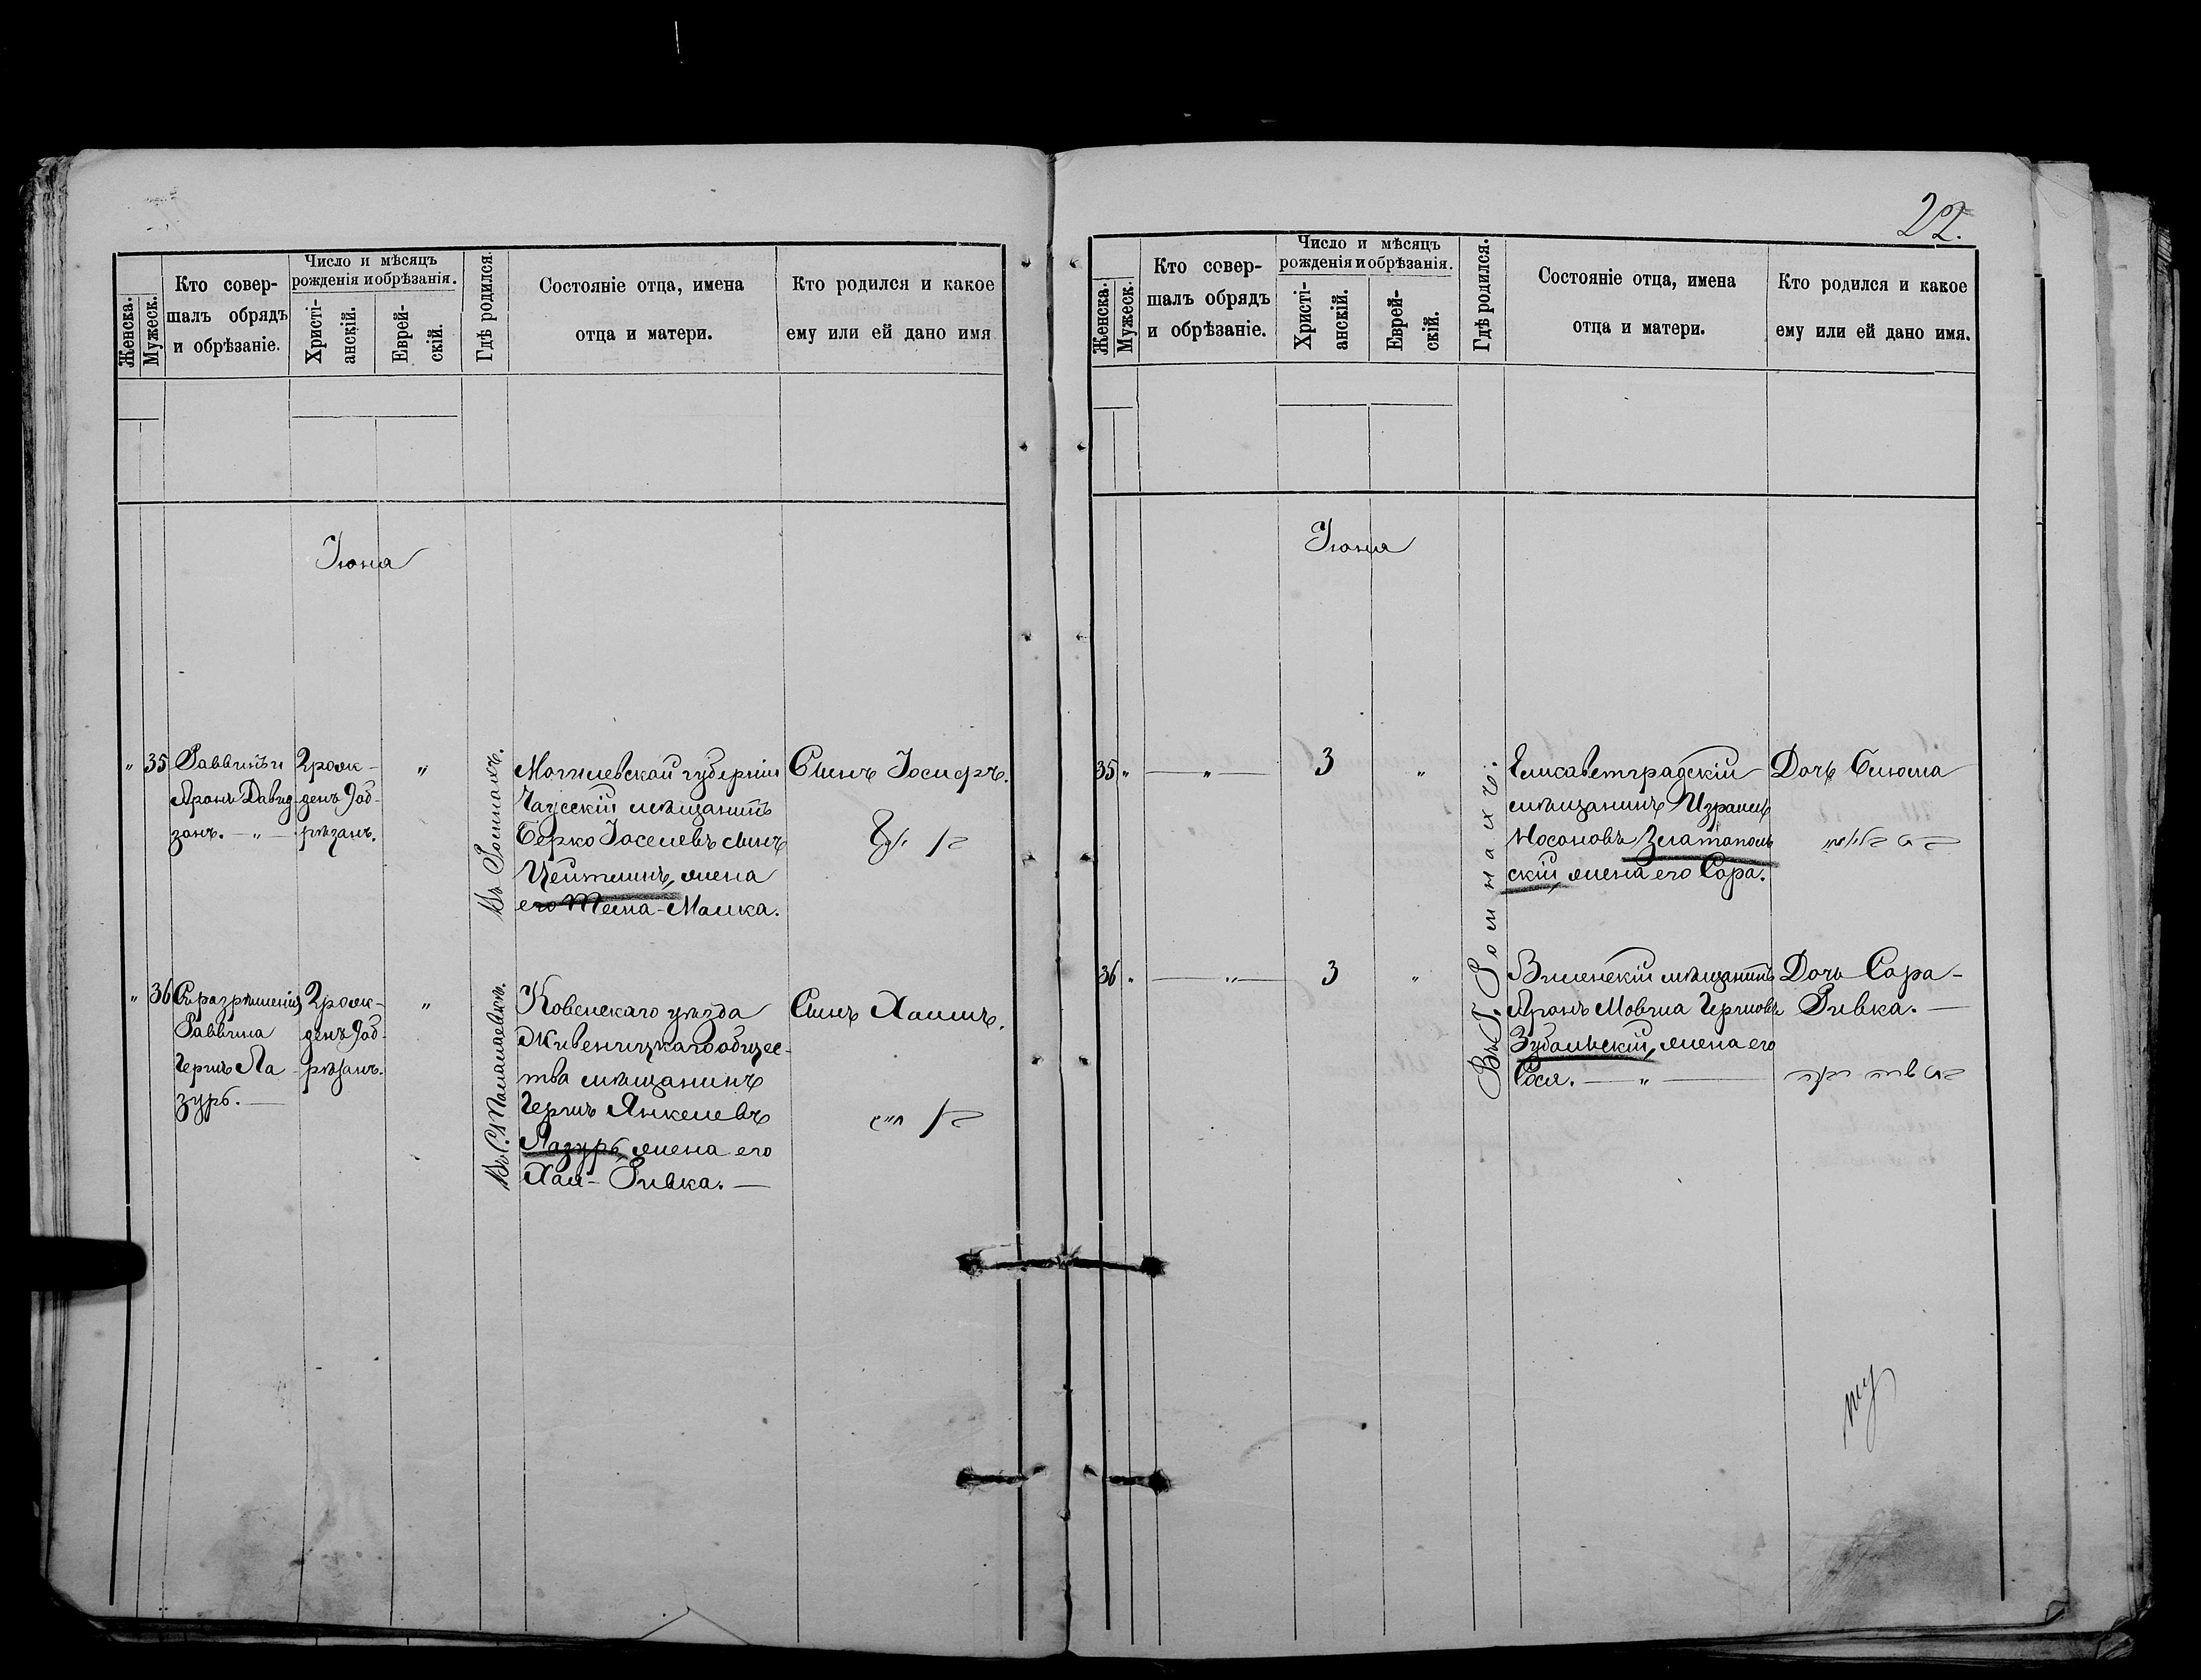 Женска.
Мужеск.
Кто совер-
шалъ обрядъ
и обрѣзаніе.
Число и мѣсяцъ
рожденія и обрѣзанія.
Христі-
анскій.
Еврей-
скій.
Гдѣ родился.
Состояніе отца, имена
отца и матери.
Кто родился и какое
ему или ей дано имя
Іюня
" 35
Раввинъ
Аронъ Давид-
зонъ. — " —
2 рож-
денъ 9 об-
рѣзанъ.
"
Въ Ромнахъ.
Могилевской губерніи
Чаусскій мѣщанинъ
Берко Іоселевъ сынъ
Цейтлинъ, жена
его Тема-Малка.
Сынъ Іосифъ.
" 36
Съ разрѣшенія
Раввина
Гершъ Ла-
зуръ. —
2 рож-
денъ 9 об-
рѣзанъ.
"
Ковенскаго уѣзда
общес-
тва мѣщанинъ
Гершъ Янкелевъ
Лазуръ, жена его
Хая-Ривка. —
Сынъ Хаимъ.
22.
Женска.
Мужеск.
Кто совер-
шалъ обрядъ
и обрѣзаніе.
Число и мѣсяцъ
рожденія и обрѣзанія.
Христі-
анскій.
Еврей-
скій.
Гдѣ родился.
Состояніе отца, имена
отца и матери.
Кто родился и какое
ему или ей дано имя.
Іюня
35 "
— " —
3
"
Въ Г. Ромнахъ.
Елисаветградскій
мѣщанинъ Израиль
Носоновъ Златополь-
скій, жена его Сара.
Дочь
36 "
— " —
3
"
Виленскій мѣщанинъ
Аронъ Мовша Гершовъ
Зубальскій, жена его
Сося. — " —
Дочь Сара-
Ривка. —